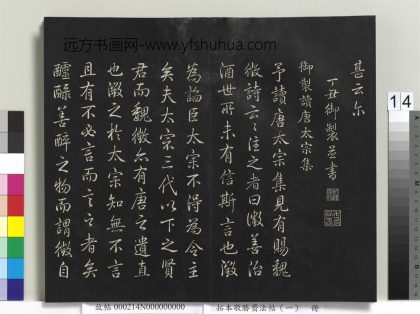 远方书画网-www.yfshuhua.com
14
甚云尔
丁丑御製並書
御製讀唐太宗集
予讀唐太宗集見有賜魏
徵詩云云注之者曰徵善治
酒世所未有信斯言也徵
為臣太宗不得為令主
矣夫太宗三代以下之賢
君而魏徵亦有唐之遺直
也徵之於太宗知無不言
且有不必言而言之者矣
醽醁善醉之物而謂徵自
故帖 000214N000000000 拓本敬勝齋法帖（一） 冊